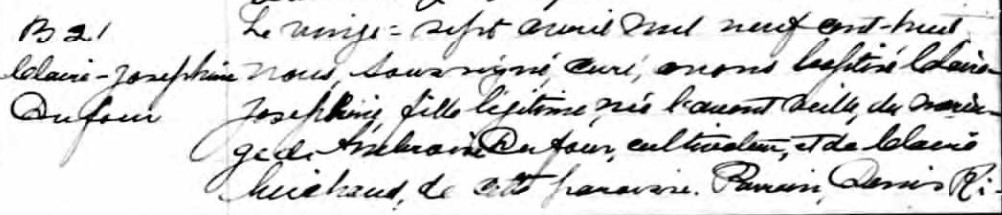 B 21
Claire-Josephine
Dufour
Le vingt-sept avril mil neuf cent-huit
nous, soussigné, curé, avons baptisé Claire-
Josephine, fille légitime, née l'avant veille, du maria-
ge de Ambroise Dufour, cultivateur, et de Claire
Michaud, de cette paroisse. Parrain, Denis Ri-